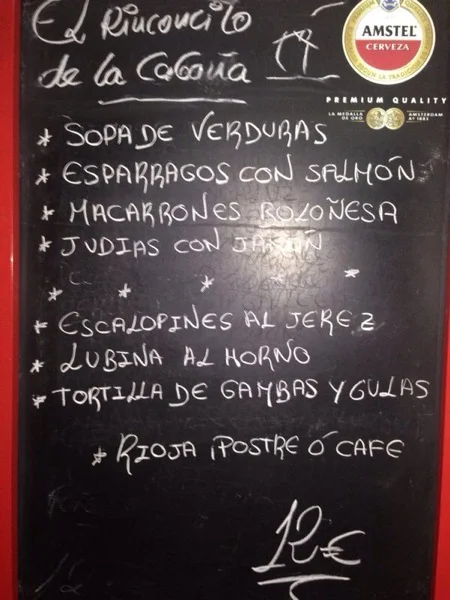 El Rinconcito
de la Cabaña
AMSTEL
CERVEZA
PREMIUM QUALITY
LA MEDALLA DE ORO
AMSTERDAM AT 1883
* SOPA DE VERDURAS
* ESPARRAGOS CON SALMÓN
* MACARRONES BOLOÑESA
* JUDIAS CON JAMÓN
* * * *
* ESCALOPINES AL JEREZ
* LUBINA AL HORNO
* TORTILLA DE GAMBAS Y GULAS
* RIOJA, POSTRE Ó CAFE
12€